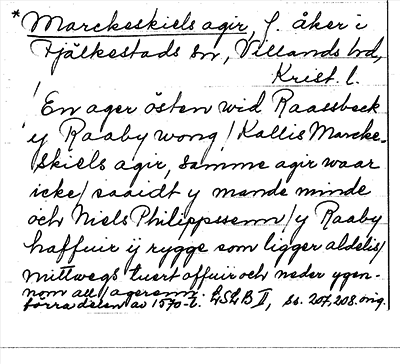 * Marckeskiels agir, f. åker i
Fjälkestads sn, Villands hd,
Krist. l.
'En ager östen wid Raassbeck
y Raaby wong / Kallis Marcke-
skiels agir, samme agir waar
icke / saaidt y mands minde
och Niels Philippssenn / y Raaby
haffuir ij rygge som ligger aldelis /
mittwegs tuert offuir och neder ygen-
nom all / agerenn.' LSLB II, ss. 207, 208. orig.
förra delen av 1570-t.